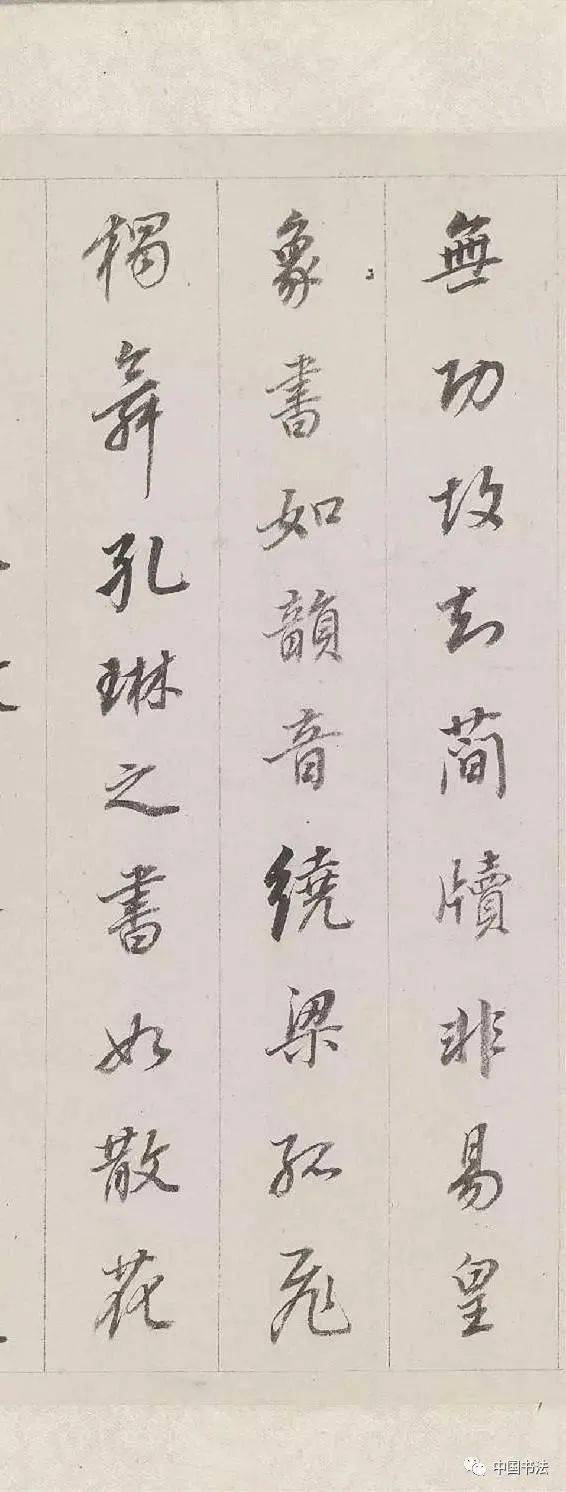 無功故知簡牘非易皇
象書如韻音繞梁孤飛
獨舞孔琳之書如散花
中国书法